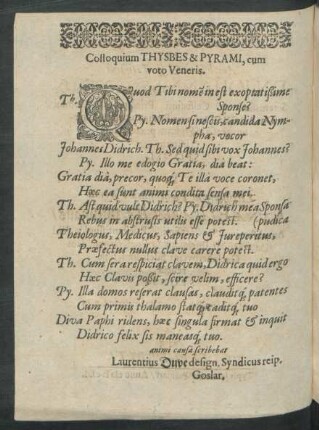 Colloquium THYSBES & PYRAMI, cum
voto Veneris.
Th. Quod Tibi nomē in est exoptatißime
Sponse?
Py. Nomen si nescis, candida Nym-
pha, vocor
Johannes Didrich. Th. Sed quid sibi vox Johannes?
Py. Illo me edogio Gratia, dia beat:
Gratia diâ, precor, quoq; Te illa voce coronet,
Hæc ea sunt animi condita sensa mei.
Th. Ast quid vult Didrich? Py. Didrich mea Sponsa
Rebus in abstrusis utilis esse potest. (pudica
Theiologus, Medicus, Sapiens & Jureperitus,
Præfectus nullus clave carere potest.
Th. Cum sera respiciat clavem, Didrica quid ergo
Hæc Clavis poßit, scire velim, efficere?
Py. Illa domos reserat clausas, clauditq; patentes
Cum primis thalamo statq; caditq; tuo
Diva Paphi ridens, hæc singula firmat & inquit
Didrico felix sis maneatq; tuo.
animi causâ scribebat
Laurentius Duve design. Syndicus reip.
Goslar.